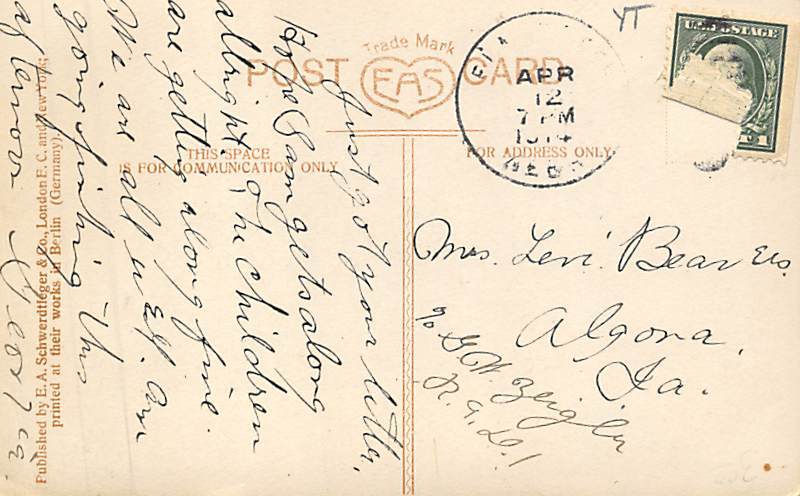 Trade Mark
POST CARD
EAS
THIS SPACE
IS FOR COMMUNICATION ONLY
FOR ADDRESS ONLY
APR
12
7 PM
1914
NEBR
U.S. POSTAGE
1
Just got your letter,
Hope Sam gets along
allright, & the children
are getting along fine.
We are all well. Am
going fishing this
afternoon
Mrs. Levi Bear
Algona,
Ia.
c/o G. W. Zeigler
R. F. D. 1
Published by E. A. Schwerdtfeger & Co., London E. C. and New York;
printed at their works in Berlin (Germany)